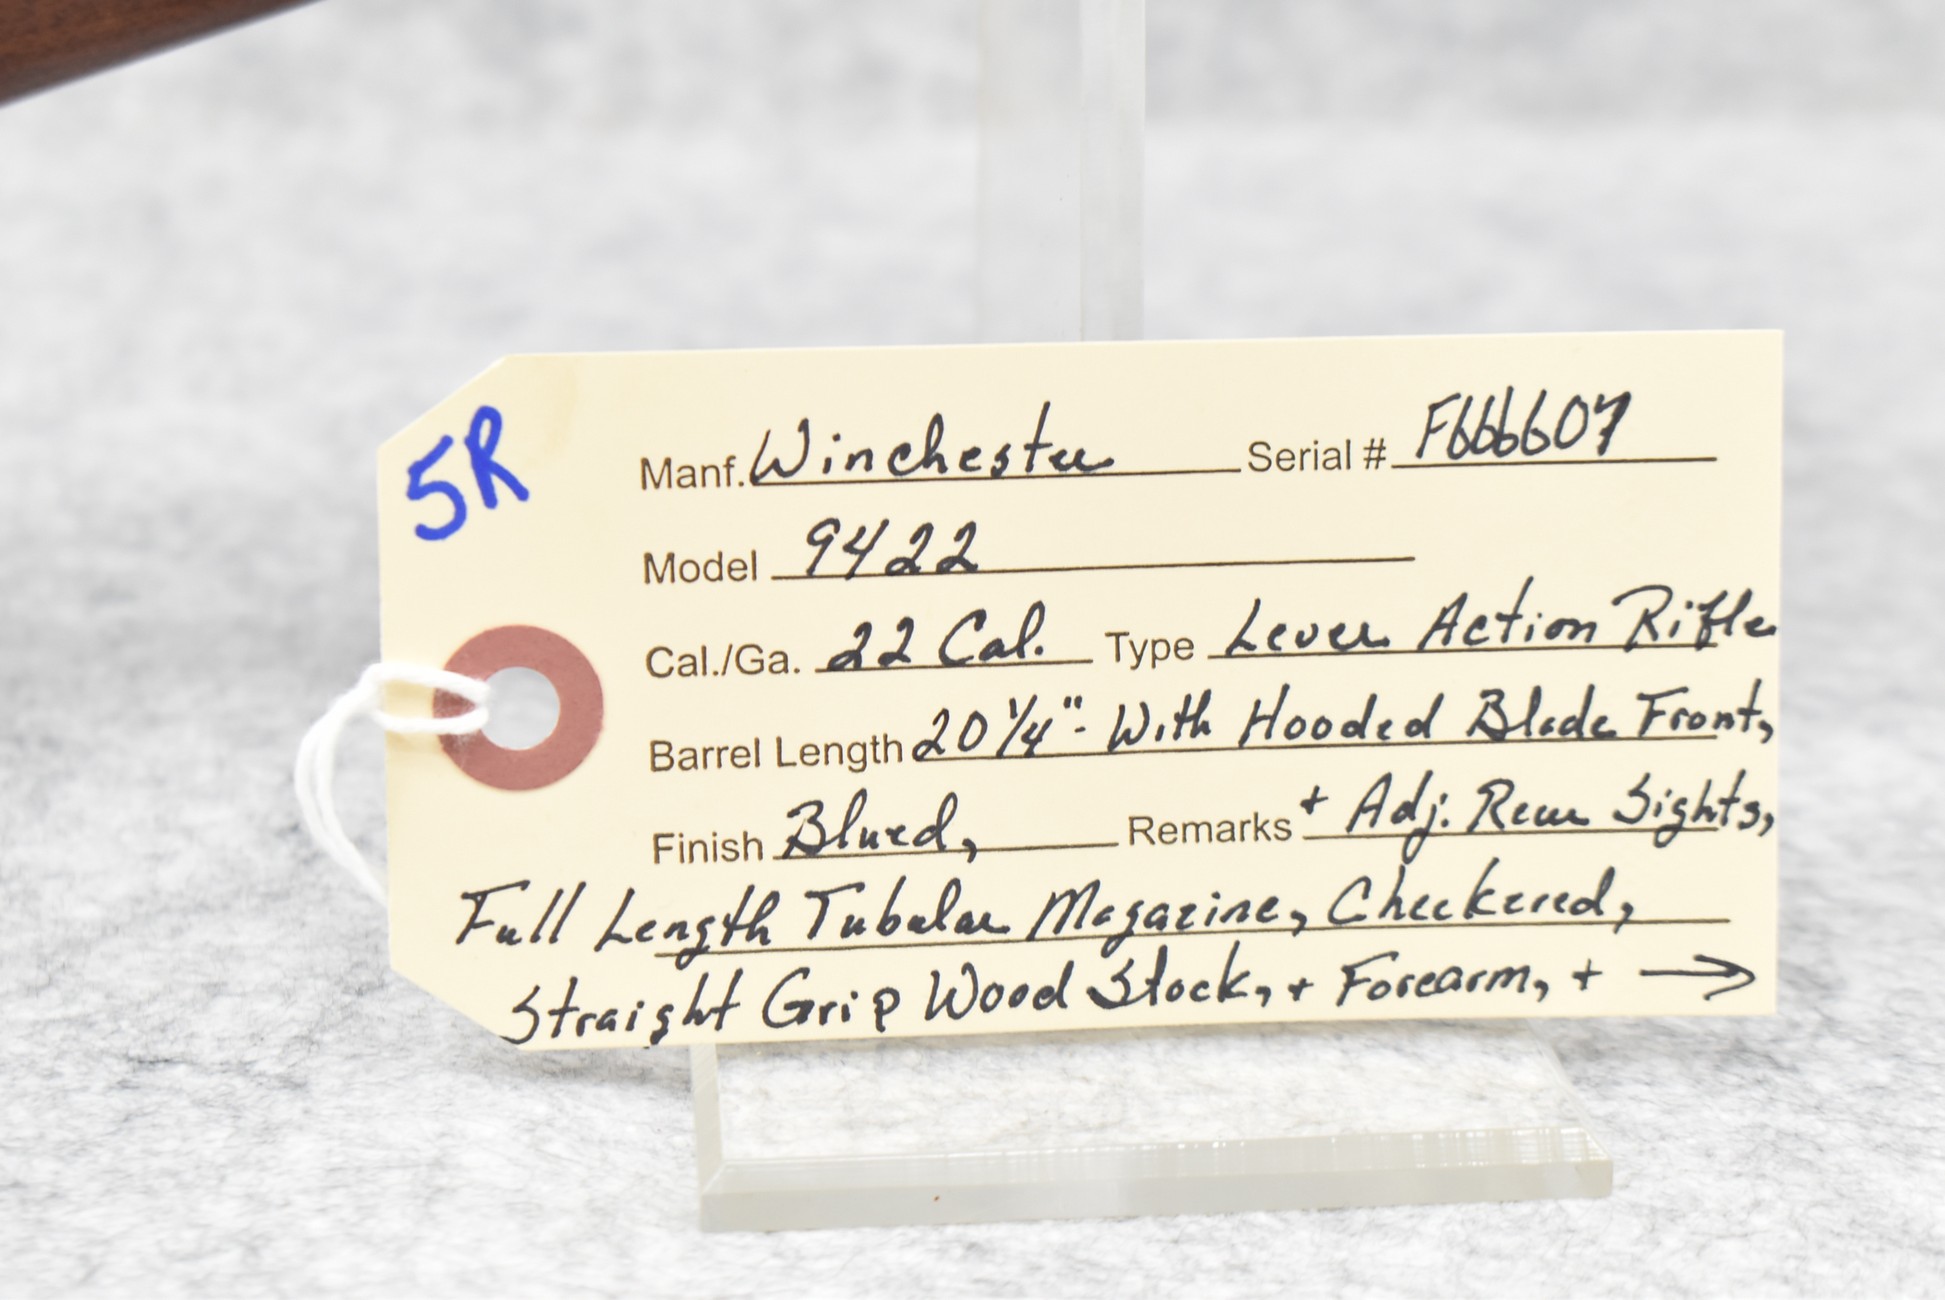 5R
Manf. Winchester Serial # F666607
Model 9422
Cal./Ga. 22 Cal. Type Lever Action Rifle
Barrel Length 20 1/4" - With Hooded Blade Front,
Finish Blued, Remarks + Adj. Rear Sights,
Full Length Tubular Magazine, Checkered,
Straight Grip Wood Stock, + Forearm, + →